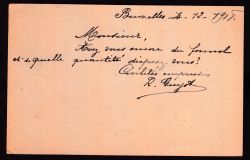 Bruxelles 4-12-1918.
Monsieur,
avez vous encore du formol
et de quelle quantité disposez vous?
Civilités empressées